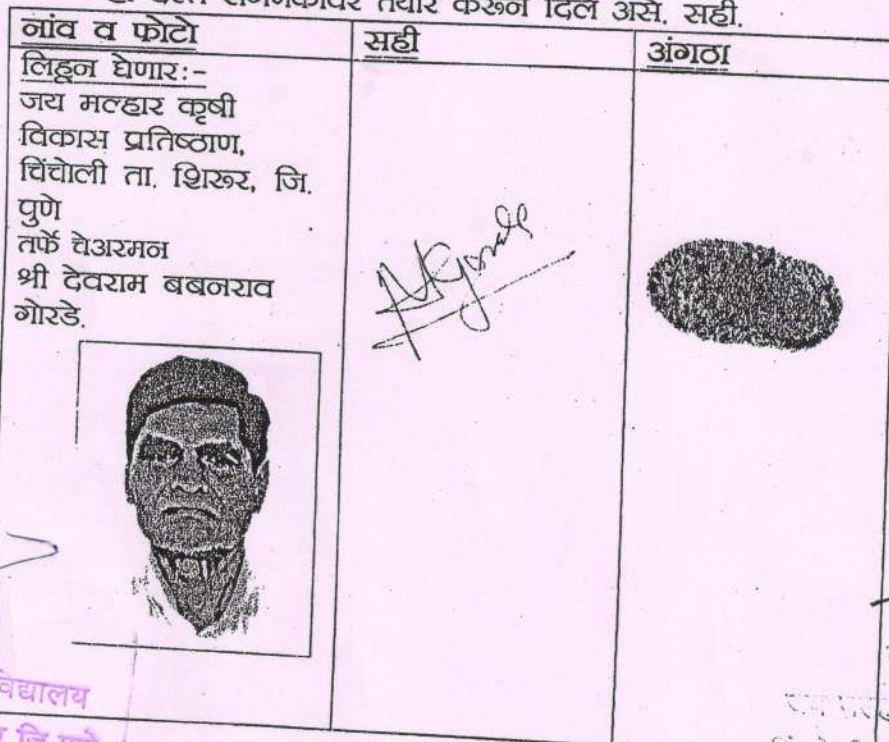 दस्त संगणकावर तयार करून दिले असे. सही.
नांव व फोटो
सही
अंगठा
लिहून घेणार:-
जय मल्हार कृषी
विकास प्रतिष्ठाण,
चिंचोली ता. शिरूर, जि.
पुणे
तर्फे चेअरमन
श्री देवराम बबनराव
गोरडे.
विद्यालय
जि पुणे